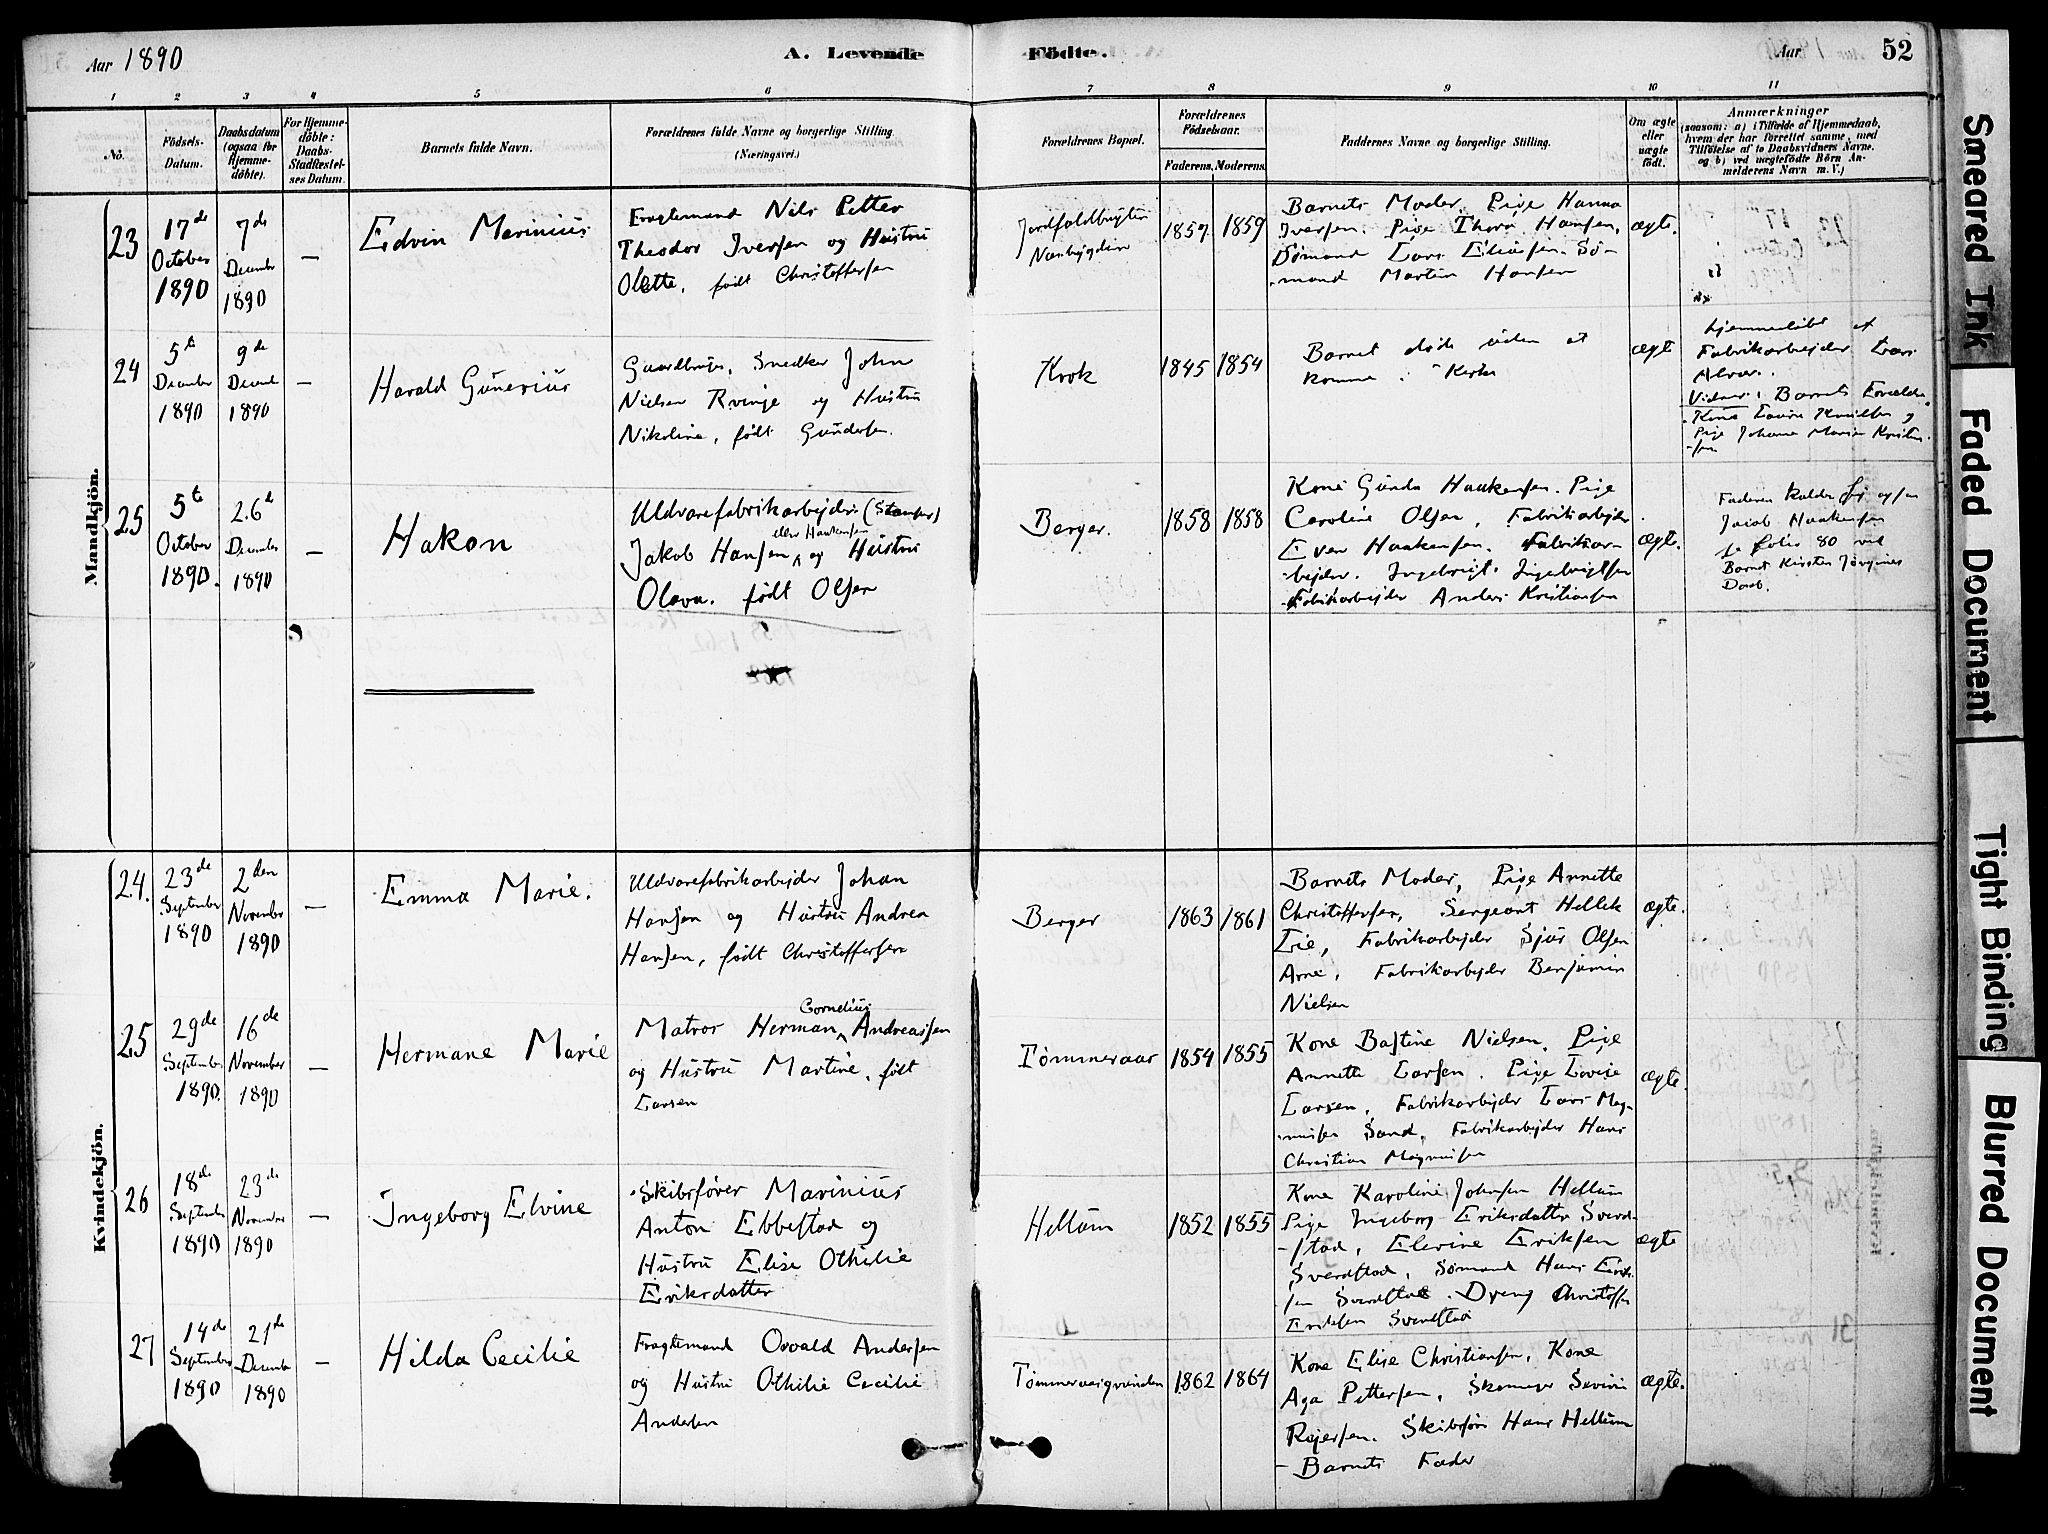 Aar 1890
A. Levende
Fødte.
Aar
52
1 2 3 4 5 6 7 8 9 10 11
No.
Fødsels-
Datum.
Daabsdatum
(ogsaa for
Hjemme-
døbte).
For Hjemme-
døbte:
Daabs-
Stadfæstel-
ses Datum.
Barnets fulde Navn.
Forældrenes fulde Navne og borgerlige Stilling.
(Næringsvei.)
Forældrenes Bopæl.
Forældrenes
Fødselsaar.
Faderens. Moderens.
Faddernes Navne og borgerlige Stilling.
Om ægte
eller
uægte
født.
Anmærkninger
(saasom: a) i Tilfælde af Hjemmedaab,
hvem der har forrettet samme, med
Tilføielse af to Daabsvidners Navne.
og b) ved uægtefødte Børn An-
melderens Navn m. V.)
Mandkjön.
23
17de
October
1890
7de
December
1890
—
Edvin Marinius
Fragtemand Nils Petter
Theodor Iversen og Hustru
Olette, født Christoffersen
Nesbygden
1857 1859
Barnets Moder, Pige Hanna
Iversen. Pige Thora Hansen,
Sømand Lars Eliasen. Sø-
mand Martin Hansen
ægte.
24
5te
December
1890
9de
Decemb
1890
—
Harald Gunerius
Gaardbruger, Snedker John
Nielsen Rvinge og Hustru
Nikoline, født Gundersen.
Krok
1845 1854
Barnet døde uden at
komme i Kirke
ægte
Hjemmedøbt af
Fabrikarbejder Lars
Vidner: Barnets Forældre
Kone Lovise Knudsen og
Pige Johanne Marie Kristian-
sen
25
5te
October
1890.
26de
December
1890
—
Hakon
Uldvarefabrikarbejder (Stamper)
eller Haakensen
Jakob Hansen og Hustru
Olava. født Olsen
Berger.
1858 1858
Kone Gunda Haakensen. Pige
Caroline Olsen, Fabrikarbejder
Even Haakensen. Fabrikar-
bejder. Ingebrigt Ingebrigtsen
Fabrikarbejder Anders Kristiansen
ægte.
Faderen kalder sig ogsaa
Jacob Haakensen
se folio 80 ved
Barnet Kirsten Jørgines
Daab.
Kvindekjön.
24.
23de
September
1890
2den
November
1890
—
Emma Marie.
Uldvarefabrikarbejder Johan
Hansen og Hustru Andrea
Hansen, født Christoffersen
Berger
1863 1861
Barnets Moder, Pige Annette
Christoffersen, Sergeant Hellek
Lie, Fabrikarbejder Sjur Olsen
Arne, Fabrikarbejder Benjamin
Nielsen
ægte.
25
29de
September
1890.
16de
November
1890
—
Hermane Marie
Cornelius
Matros Herman Andreassen
og Hustru Martine, født
Larsen
Tømmeraas
1854 1855
Kone Bastine Nielsen, Pige
Annette Larsen. Pige Lovise
Larsen, Fabrikarbejder Lars Mag-
nusen Sand, Fabrikarbejder Hans
Christian Magnusen
ægte.
26
18de
September
1890
23de
November
1890
—
Ingeborg Elvine
Skibsfører Marinius
Anton Ebbestad og
Hustru Elise Othilie
Eriksdatter
Hellum
1852 1855
Kone Karoline Johnsen Hellum
Pige Ingeborg Eriksdatter Sverd-
stad, Elevine Eriksen
Sverdstad, Sømand Hans Erik-
sen Sverdstad. Dreng Christoffer
Eriksen Sverdstad
ægte
27
14de
September
1890
21de
December
1890
—
Hilda Cecilie
Fragtemand Osvald Andersen
og Hustru Othilie Cecilie
Andersen
1862 1864
Kone Elise Christiansen, Kone
Aga Pettersen, Skomager Severin
Rejersen. Skibsfør. Hans Hellum
Barnets Fader
ægte.
Smeared Ink
Faded Document
Tight Binding
Blurred Document